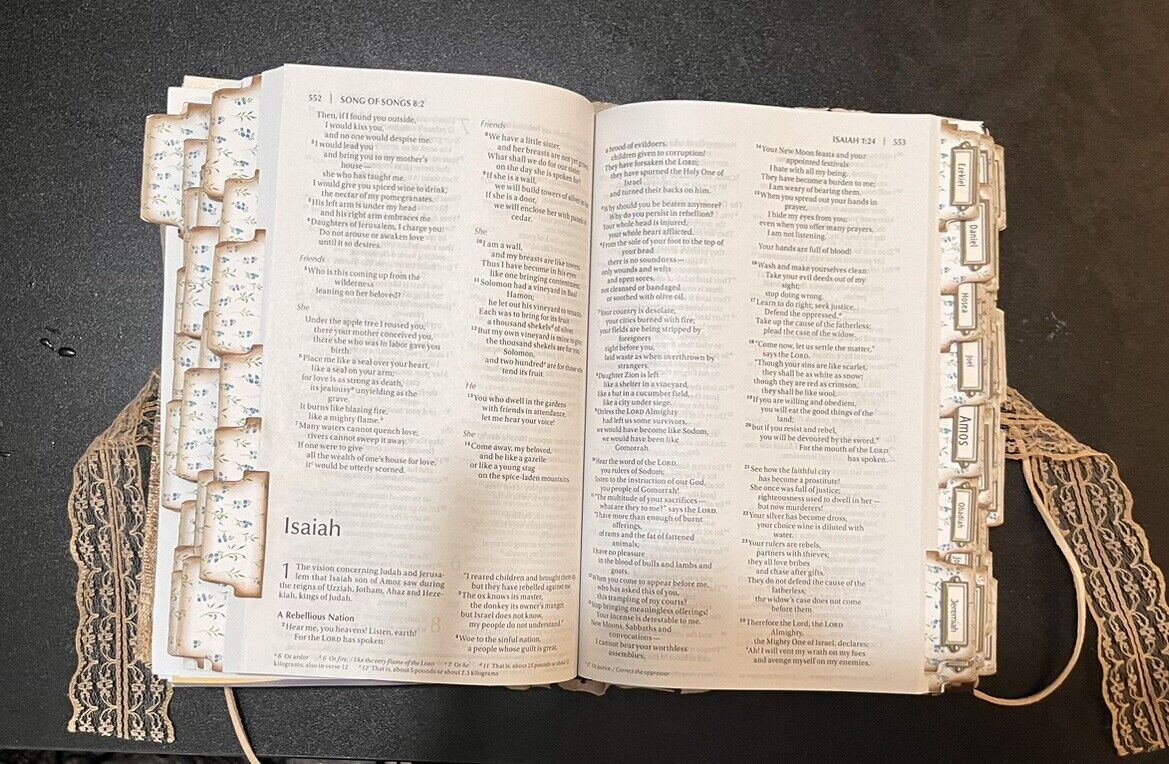 552 | SONG OF SONGS 8:2
Then, if I found you outside,
I would kiss you,
and no one would despise me.
2 I would lead you
and bring you to my mother's
house —
she who has taught me.
I would give you spiced wine to drink,
the nectar of my pomegranates.
3 His left arm is under my head
and his right arm embraces me.
4 Daughters of Jerusalem, I charge you:
Do not arouse or awaken love
until it so desires.
Friends
5 Who is this coming up from the
wilderness
leaning on her beloved?
She
Under the apple tree I roused you;
there your mother conceived you,
there she who was in labor gave you
birth.
6 Place me like a seal over your heart,
like a seal on your arm;
for love is as strong as death,
its jealousy unyielding as the
grave.
It burns like blazing fire,
like a mighty flame.
7 Many waters cannot quench love;
rivers cannot sweep it away.
If one were to give
all the wealth of one's house for love,
it would be utterly scorned.
Friends
8 We have a little sister,
and her breasts are not yet
What shall we do for our sister
on the day she is spoken for?
9 If she is a wall,
we will build towers of silver on
If she is a door,
we will enclose her with panels of
cedar.
She
10 I am a wall,
and my breasts are like towers.
Thus I have become in his eyes
like one bringing contentment.
11 Solomon had a vineyard in Baal
Hamon;
he let out his vineyard to tenants.
Each was to bring for its fruit
a thousand shekels of silver.
12 But my own vineyard is mine to give;
the thousand shekels are for you,
Solomon,
and two hundred are for those who
tend its fruit.
He
13 You who dwell in the gardens
with friends in attendance,
let me hear your voice!
She
14 Come away, my beloved,
and be like a gazelle
or like a young stag
on the spice-laden mountains.
Isaiah
1 The vision concerning Judah and Jerusa-
lem that Isaiah son of Amoz saw during
the reigns of Uzziah, Jotham, Ahaz and Heze-
kiah, kings of Judah.
A Rebellious Nation
2 Hear me, you heavens! Listen, earth!
For the LORD has spoken:
"I reared children and brought them up,
but they have rebelled against me.
3 The ox knows its master,
the donkey its owner's manger,
but Israel does not know,
my people do not understand."
4 Woe to the sinful nation,
a people whose guilt is great,
6 Or ardor 6 Or fire, / like the very flame of the LORD 7 Or he 11 That is, about 25 pounds or about 12
kilograms; also in verse 12 12 That is, about 5 pounds or about 2.3 kilograms
ISAIAH 1:24 | 553
a brood of evildoers,
children given to corruption!
They have forsaken the LORD;
they have spurned the Holy One of
Israel
and turned their backs on him.
5 Why should you be beaten anymore?
Why do you persist in rebellion?
Your whole head is injured,
your whole heart afflicted.
6 From the sole of your foot to the top of
your head
there is no soundness —
only wounds and welts
and open sores,
not cleansed or bandaged
or soothed with olive oil.
7 Your country is desolate,
your cities burned with fire;
your fields are being stripped by
foreigners
right before you,
laid waste as when overthrown by
strangers.
8 Daughter Zion is left
like a shelter in a vineyard,
like a hut in a cucumber field,
like a city under siege.
9 Unless the LORD Almighty
had left us some survivors,
we would have become like Sodom,
we would have been like
Gomorrah.
10 Hear the word of the LORD,
you rulers of Sodom;
listen to the instruction of our God,
you people of Gomorrah!
11 "The multitude of your sacrifices —
what are they to me?" says the LORD.
"I have more than enough of burnt
offerings,
of rams and the fat of fattened
animals;
I have no pleasure
in the blood of bulls and lambs and
goats.
12 When you come to appear before me,
who has asked this of you,
this trampling of my courts?
13 Stop bringing meaningless offerings!
Your incense is detestable to me.
New Moons, Sabbaths and
convocations —
I cannot bear your worthless
assemblies.
14 Your New Moon feasts and your
appointed festivals
I hate with all my being.
They have become a burden to me;
I am weary of bearing them.
15 When you spread out your hands in
prayer,
I hide my eyes from you;
even when you offer many prayers,
I am not listening.
Your hands are full of blood!
16 Wash and make yourselves clean.
Take your evil deeds out of my
sight;
stop doing wrong.
17 Learn to do right; seek justice.
Defend the oppressed.
Take up the cause of the fatherless;
plead the case of the widow.
18 "Come now, let us settle the matter,"
says the LORD.
"Though your sins are like scarlet,
they shall be as white as snow;
though they are red as crimson,
they shall be like wool.
19 If you are willing and obedient,
you will eat the good things of the
land;
20 but if you resist and rebel,
you will be devoured by the sword."
For the mouth of the LORD
has spoken.
21 See how the faithful city
has become a prostitute!
She once was full of justice;
righteousness used to dwell in her —
but now murderers!
22 Your silver has become dross,
your choice wine is diluted with
water.
23 Your rulers are rebels,
partners with thieves;
they all love bribes
and chase after gifts.
They do not defend the cause of the
fatherless;
the widow's case does not come
before them.
24 Therefore the Lord, the LORD
Almighty,
the Mighty One of Israel, declares:
"Ah! I will vent my wrath on my foes
and avenge myself on my enemies.
17 Or justice. / Correct the oppressor
Ezekiel
Daniel
Hosea
Joel
Amos
Obadiah
Jo
Jeremiah